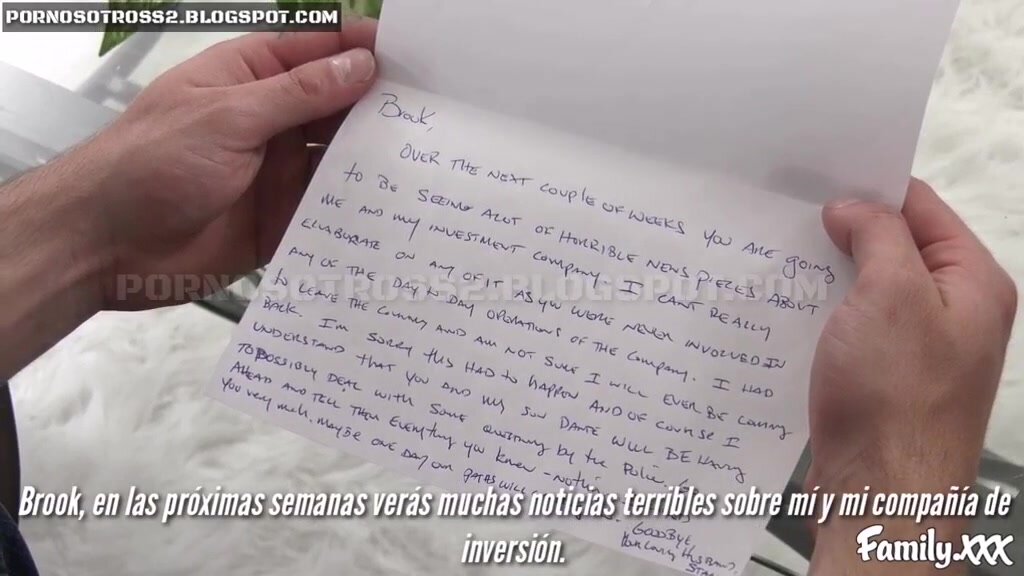 PORNOSOTROSS2.BLOGSPOT.COM
Brook,
OVER THE NEXT COUPLE OF WEEKS YOU ARE GOING
TO BE SEEING ALOT OF HORRIBLE NEWS PIECES ABOUT
ME AND MY INVESTMENT COMPANY. I CANT REALLY
ELABORATE ON ANY OF IT AS YOU WERE NEVER INVOLVED IN
ANY OF THE DAY TO DAY OPERATIONS OF THE COMPANY. I HAD
TO LEAVE THE COUNTRY AND AM NOT SURE I WILL EVER BE COMING
BACK. I'M SORRY THIS HAD TO HAPPEN AND OF COURSE I
UNDERSTAND THAT YOU AND MY SON DANTE WILL BE HAVING
TO POSSIBLY DEAL WITH SOME QUESTIONING BY THE POLICE.
AHEAD AND TELL THEM EVERYTHING YOU KNOW - NOTHI
YOU VERY MUCH. MAYBE ONE DAY OUR PATHS WILL
GOODBYE
HUSBAND,
PORNOSOTROSS2.BLOGSPOT.COM
Brook, en las próximas semanas verás muchas noticias terribles sobre mí y mi compañía de
inversión.
Family.XXX